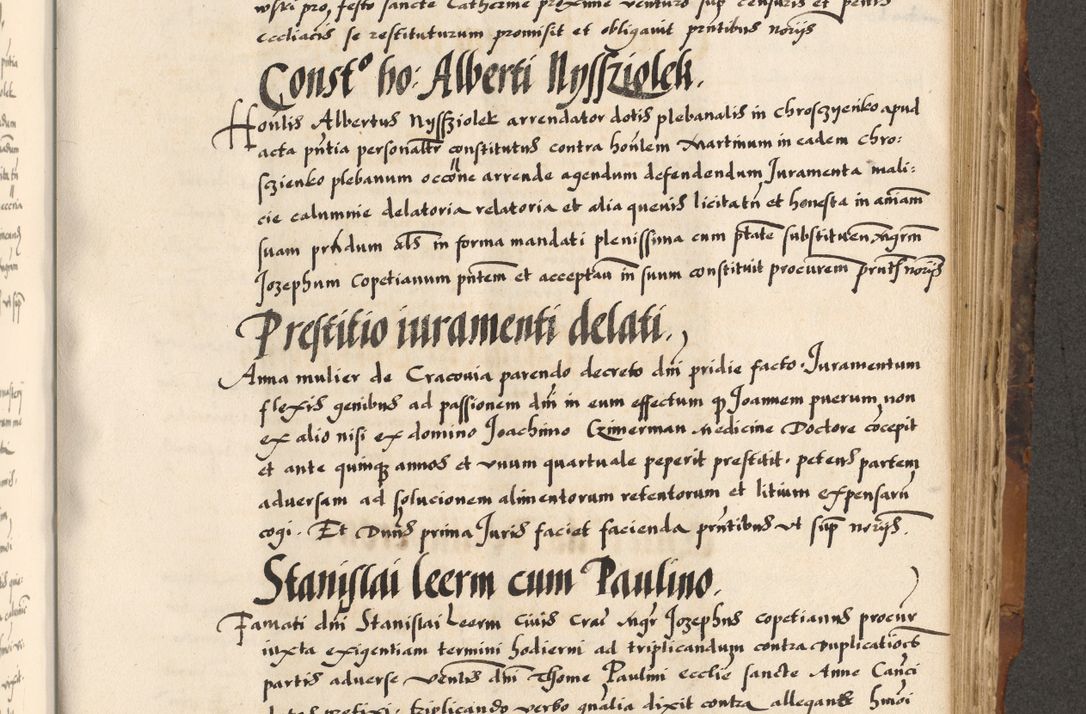 wski pro, festo sancte Catherine proxime venturo sup censuris et penis
eccliacis se restituturum promisit et obligavit pntibus norijs
Const° ho: Alberti Nyssziolek.
Honlis Albertus Nyssziolek arrendator dotis plebanalis in chrosczyenko apud
acta pntia personaltr constitutus contra honlem Martinum in eadem chro:
sczienko plebanum occone arrende agendum defendendum Juramenta mali:
cie calumnie delatoria relatoria et alia quevis licitatn et honesta in aniam
suam prndum als in forma mandati plenissima cum ptate substituen, mgrm
Jozephum Copetianum pntem et acceptan in suum constituit procurem pntbs norijs
Prestitio iuramenti delati.
Anna mulier de Cracovia parendo decreto dni pridie facto. Juramentum
flexis genibus ad passionem dni in eum effectum q Joannem puerum, non
ex alio nisi ex domino Joachimo Czimerman Medicine Doctore cocepit
et ante quinq annos et unum quartuale peperit prestitit. petens partem
adversam ad solucionem alimentorum retentorum et litium expensarn
cogi. Et Duns prima Juris faciet facienda pntibus vt sup norijs.
Stanislai leerm cum Paulino.
Famati dni Stanislai Leerm civis Crac Mgr Jozephus copetianus procur
iuxta exigentiam termini hodierni ad triplicandum contra duplicationes
partis adverse venlis dni Thome Paulini ecclie sancte Anne Canci
prefixi. triplicando verbo qnalia dixit contra allegante hmoi